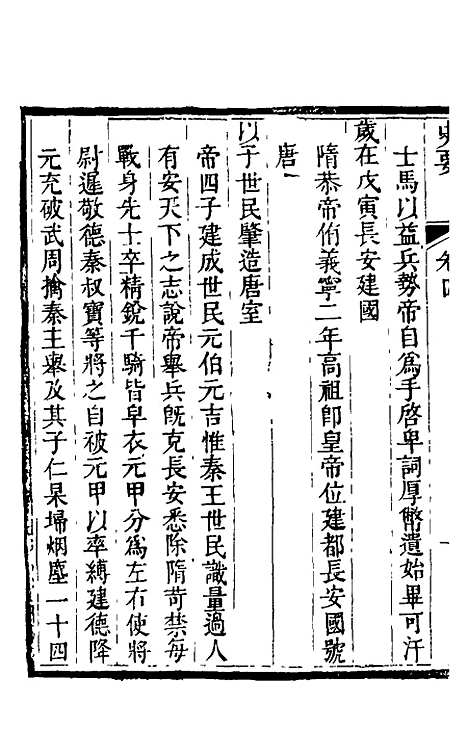 史要 卷四
士馬以益兵勢帝自爲手啓卑詞厚幣遺始畢可汗
歲在戊寅長安建國
隋恭帝侑義寧二年高祖卽皇帝位建都長安國號
唐
以子世民肇造唐室
帝四子建成世民元伯元吉惟秦王世民識量過人
有安天下之志說帝舉兵旣克長安悉除隋苛禁每
戰身先士卒精銳千騎皆皁衣元甲分爲左右使將
尉遲敬德秦叔寶等將之自被元甲以率縛建德降
元充破武周擒秦王舉及其子仁杲埽烟塵一十四